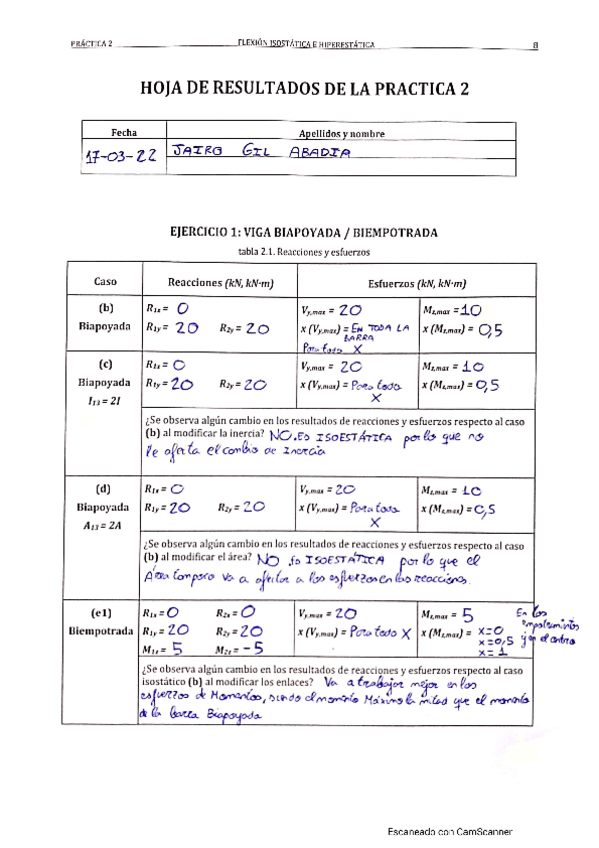 PRÁCTICA 2 FLEXIÓN ISOSTÁTICA E HIPERESTÁTICA 8
HOJA DE RESULTADOS DE LA PRACTICA 2
Fecha Apellidos y nombre
17-03-22 JAIRO GIL ABADIA
EJERCICIO 1: VIGA BIAPOYADA / BIEMPOTRADA
tabla 2.1. Reacciones y esfuerzos
Caso Reacciones (kN, kN·m) Esfuerzos (kN, kN·m)
(b) R1x = 0 Vy,max = 20 Mz,max = 10
Biapoyada R1y = 20 R2y = 20 x (Vy,max) = EN TODA LA BARRA x (Mz,max) = 0,5
Para todo X
(c) R1x = 0 Vy,max = 20 Mz,max = 10
Biapoyada R1y = 20 R2y = 20 x (Vy,max) = Para todo x (Mz,max) = 0,5
I13 = 2I X
¿Se observa algún cambio en los resultados de reacciones y esfuerzos respecto al caso
(b) al modificar la inercia? NO. Es ISOESTÁTICA por lo que no
le afecta el cambio de Inercia
(d) R1x = 0 Vy,max = 20 Mz,max = 10
Biapoyada R1y = 20 R2y = 20 x (Vy,max) = Para todo x (Mz,max) = 0,5
A13 = 2A X
¿Se observa algún cambio en los resultados de reacciones y esfuerzos respecto al caso
(b) al modificar el área? NO Es ISOESTÁTICA por lo que el
Área tampoco va a afectar a los esfuerzos en las reacciones.
(e1) R1x = 0 R2x = 0 Vy,max = 20 Mz,max = 5 En los
Biempotrada R1y = 20 R2y = 20 x (Vy,max) = Para todo X x (Mz,max) = x=0 empotramientos
M1z = 5 M2z = -5 x=0,5 y en el centro
x=1
¿Se observa algún cambio en los resultados de reacciones y esfuerzos respecto al caso
isostático (b) al modificar los enlaces? Va a trabajar mejor en los
esfuerzos de Momentos, siendo el momento Máximo la mitad que el momento
de la barra Biapoyada
Escaneado con CamScanner